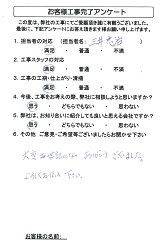 お客様工事完了アンケート
この度は、弊社の工事にてご愛顧頂き誠に有難うございました。
最後に、下記アンケートにお答え頂きます様お願い申し上げます。
1. 担当者の対応 （担当者名： ）
満足 ・ 普通 ・ 不満
2. 工事スタッフの対応
満足 ・ 普通 ・ 不満
3. 工事の工期・仕上がり・清掃
満足 ・ 普通 ・ 不満
4. 今後、工事をお考えの際、弊社に相談しようと思いますか？
思う ・ どちらでもない ・ 思わない
5. 弊社は、お知り合いに紹介しても良いと思える会社ですか？
思う ・ どちらでもない ・ 思わない
6. その他 ご意見・ご希望等ございましたらお聞かせ下さい
大変お世話になり ありがとうございました。
お客様のお名前：